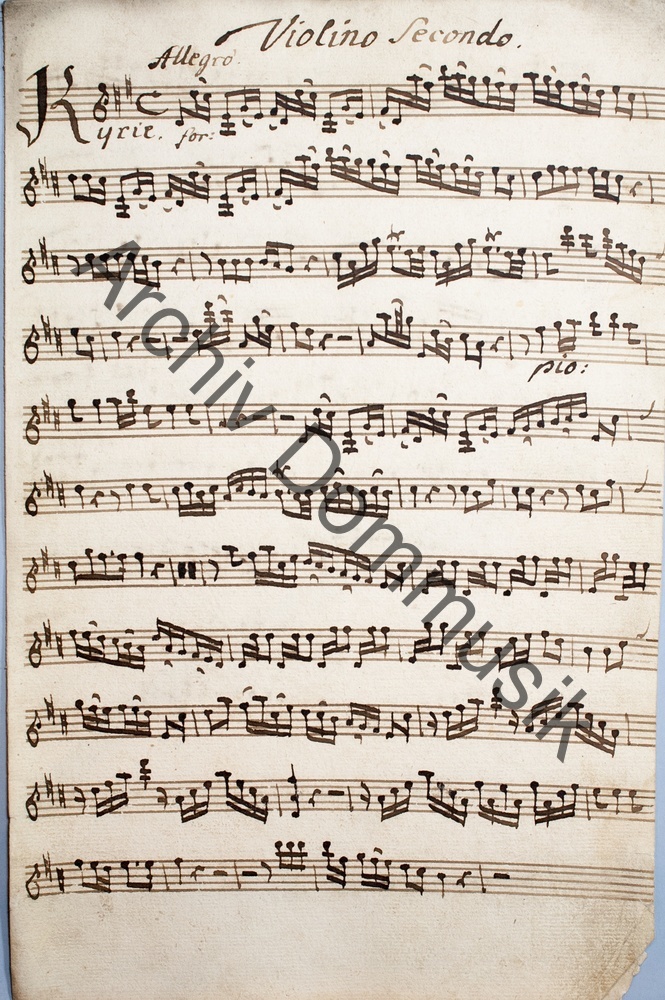 Violino Secondo.
Allegro.
Kyrie. for:
pio:
Archiv Dommusik